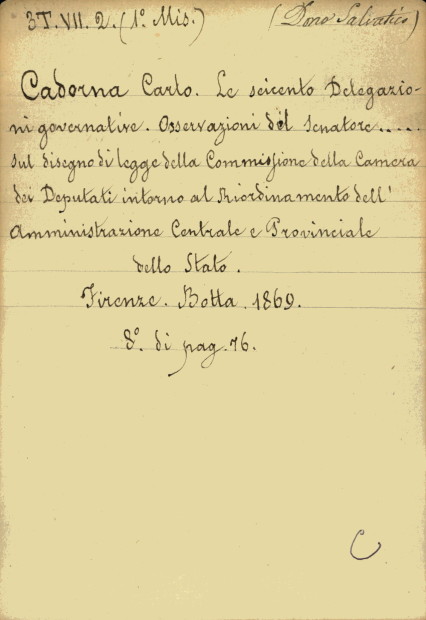 3T. VII. 2. (1º. Mis.) (Dono Salvatico)
Cadorna Carlo. Le seicento Delegazio-
ni governative. Osservazioni del Senatore.....
sul disegno di legge della Commissione della Camera
dei Deputati intorno al Riordinamento dell'
Amministrazione Centrale e Provinciale
dello Stato.
Firenze. Botta. 1869.
8º. di pag. 76.
C